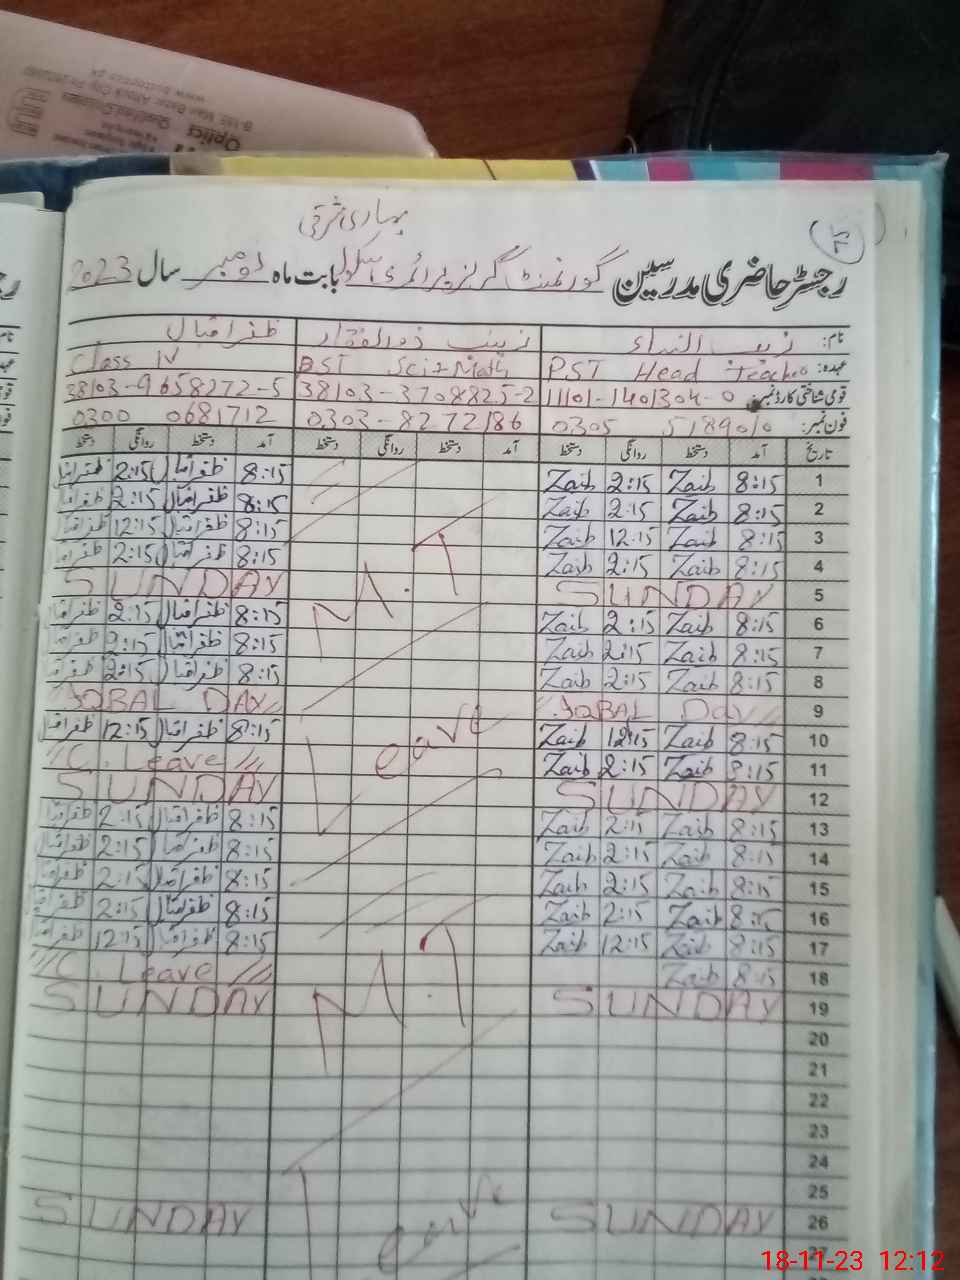 Optics
بہاری شرقی
رجسٹر حاضری مدرسین گورنمنٹ گرلز پرائمری سکول بابت ماہ نومبر سال 2023
نام: زیب النساء زینب ذوالفقار ظفر اقبال
عہدہ: PST Head Teacher BST Sci-Math Class IV
قومی شناختی کارڈ نمبر: 11101-1401304-0 38103-3708825-2 38103-9658272-5
فون نمبر: 0305 5189010 0303-8272186 0300 0681712
تاریخ آمد دستخط روانگی دستخط آمد دستخط روانگی دستخط آمد دستخط روانگی دستخط
1 8:15 Zaib 2:15 Zaib 8:15 ظفر اقبال 2:15 ظفر اقبال
2 8:15 Zaib 2:15 Zaib 8:15 ظفر اقبال 2:15 ظفر اقبال
3 8:15 Zaib 12:15 Zaib 8:15 ظفر اقبال 12:15 ظفر اقبال
4 8:15 Zaib 2:15 Zaib M.T 8:15 ظفر اقبال 2:15 ظفر اقبال
5 SUNDAY SUNDAY
6 8:15 Zaib 2:15 Zaib 8:15 ظفر اقبال 2:15 ظفر اقبال
7 8:15 Zaib 2:15 Zaib 8:15 ظفر اقبال 2:15 ظفر اقبال
8 8:15 Zaib 2:15 Zaib 8:15 ظفر اقبال 2:15 ظفر اقبال
9 IQBAL Day IQBAL DAY
10 8:15 Zaib 12:15 Zaib Leave 8:15 ظفر اقبال 12:15 ظفر اقبال
11 8:15 Zaib 2:15 Zaib C. Leave
12 SUNDAY SUNDAY
13 8:15 Zaib 2:15 Zaib 8:15 ظفر اقبال 2:15 ظفر اقبال
14 8:15 Zaib 2:15 Zaib 8:15 ظفر اقبال 2:15 ظفر اقبال
15 8:15 Zaib 2:15 Zaib 8:15 ظفر اقبال 2:15 ظفر اقبال
16 8:15 Zaib 2:15 Zaib 8:15 ظفر اقبال 2:15 ظفر اقبال
17 8:15 Zaib 12:15 Zaib 8:15 ظفر اقبال 12:15 ظفر اقبال
18 8:15 Zaib M.T C. Leave
19 SUNDAY SUNDAY
20
21
22
23
24
25
26 SUNDAY Leave SUNDAY
27
18-11-23 12:12